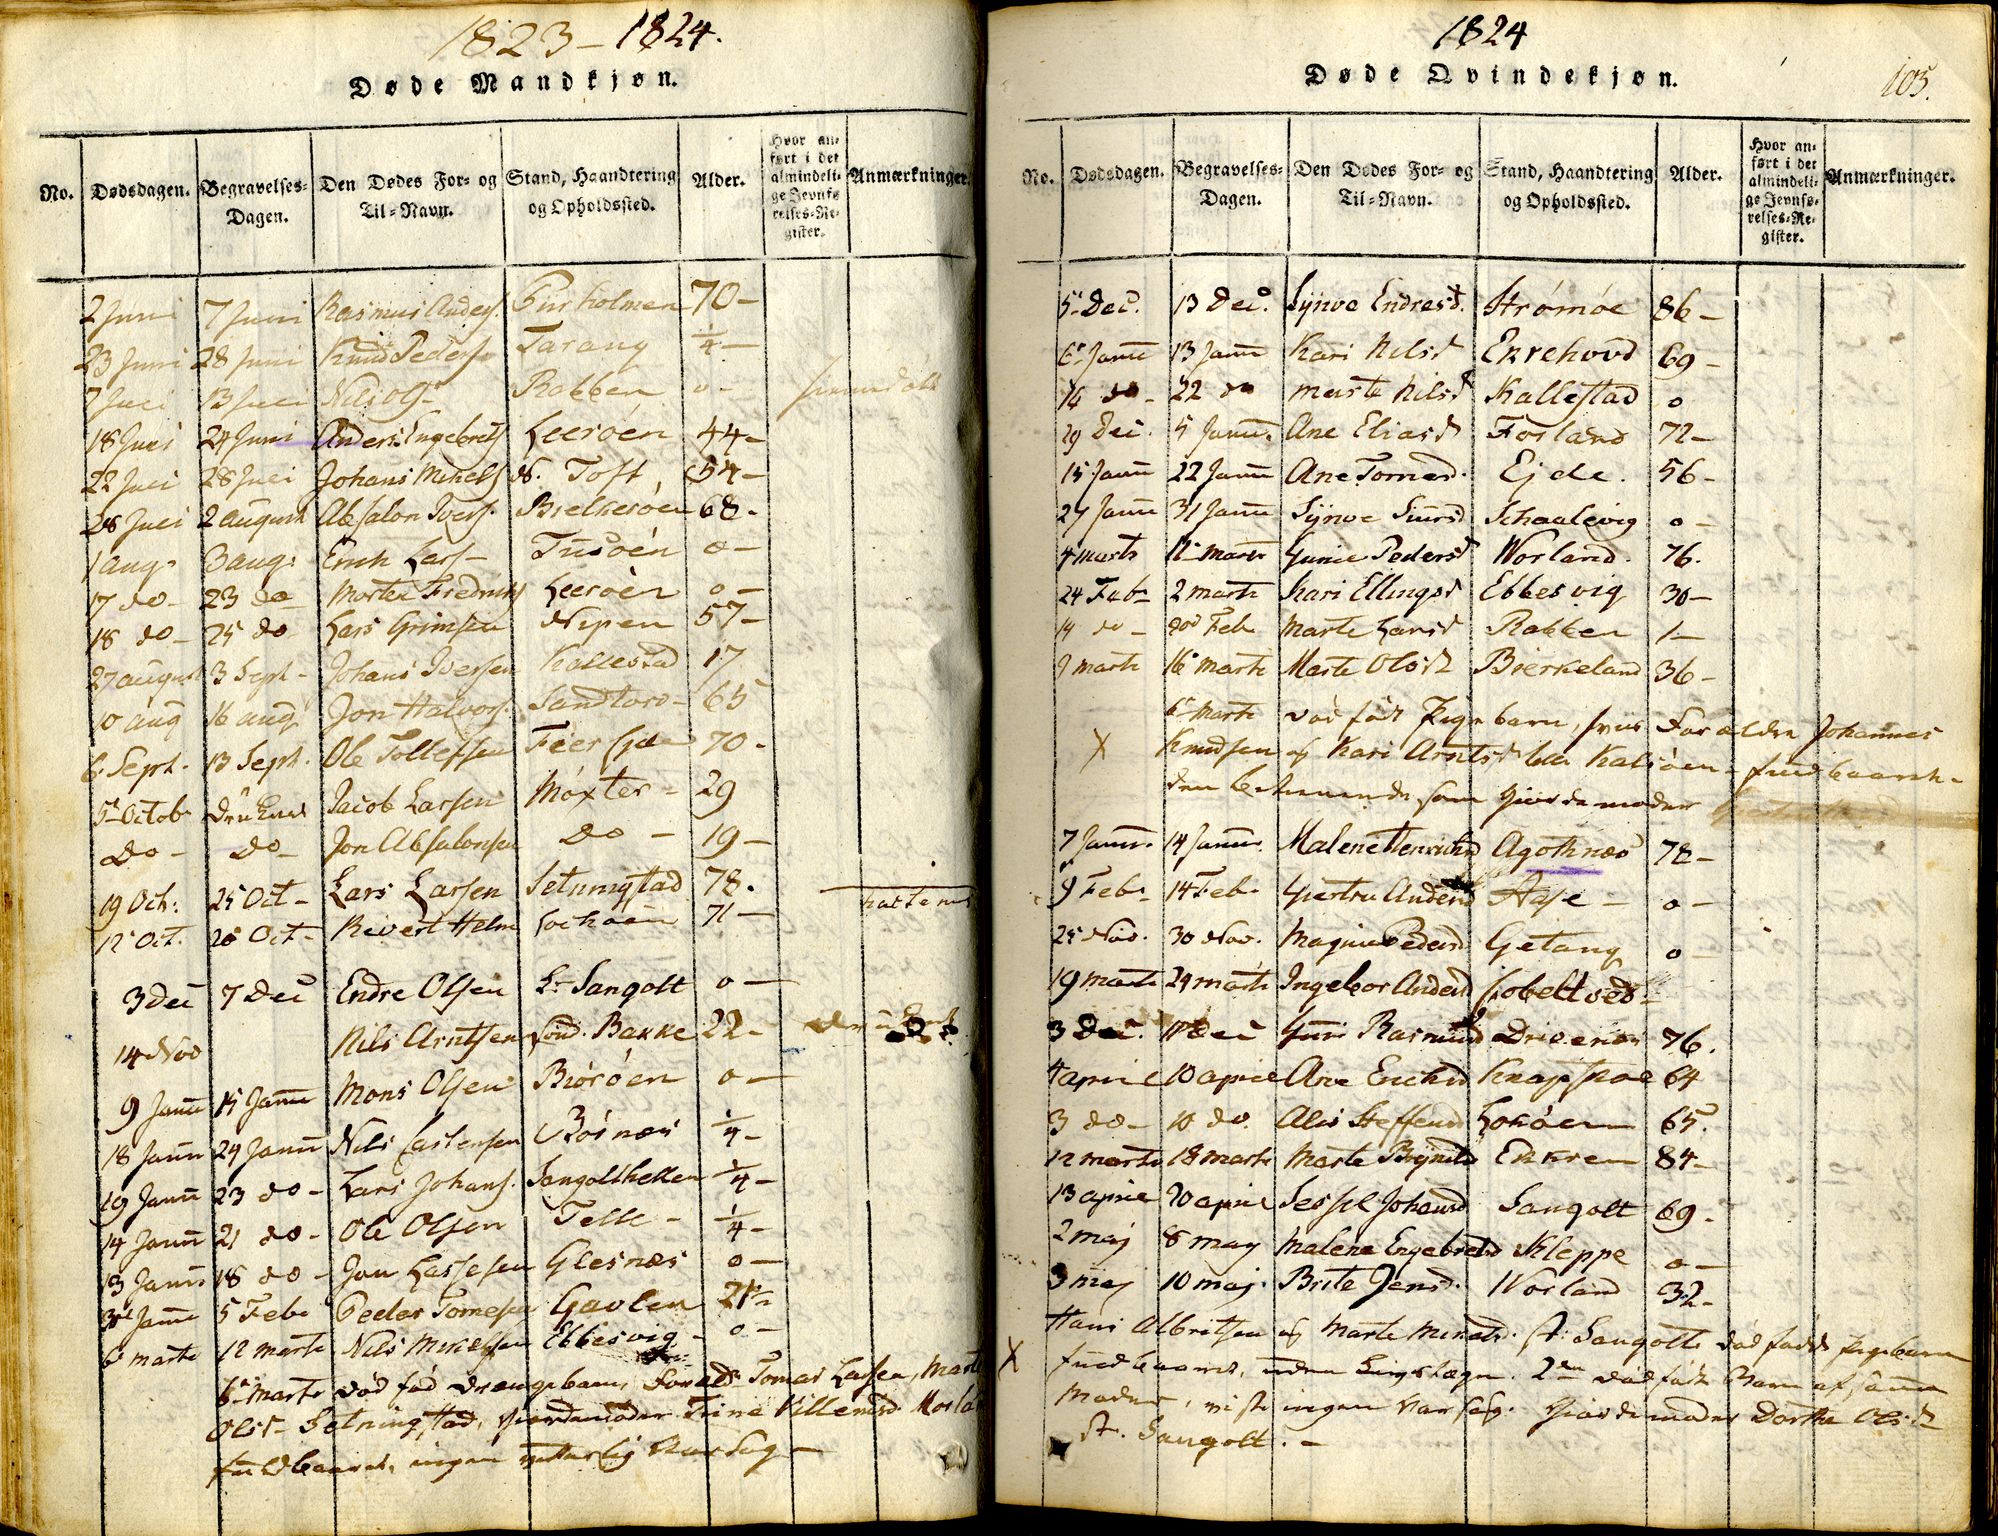 1823 – 1824.
Døde Mandkjøn.
No. Dødsdagen. Begravelses-Dagen. Den Dødes For- og Til-Navn. Stand, Haandtering og Opholdssted. Alder. Hvor anført i det almindelige Jevnførelses-Register. Anmærkninger.
2 Juni 7 Juni Rasmus Anders. Furholmen 70 –
23 Juni 28 Juni Knud Peders Tarang 1/4 –
7 Juli 13 Juli Nils Ols Rabben 0 –
18 Juli 24 Juni Anders Ingebrets Leeröen 44 –
22 Juli 28 Juli Johans Mikels N. Toft 54 –
28 Juli 2 august Absalon Ivers. Bielkeröen 68 –
1 aug. 3 aug: Erich Lars – Tüsöen 0 –
17 do – 23 do Morten Fredriks Leeröen 0 –
18 do – 25 do Lars Grimsen Nipen 57 –
27 august 3 Sept – Johans Iversen Kallestad 17
10 aug 16 aug Jon Halvors. Sandtorv – 65
6 Sept. 13 Sept. Ole Tollefsen 70 –
5 Octob Jacob Larsen Møxter – 29
Do – Do – Jon Absalonsen Do – 19 –
19 Oct: 25 Oct – Lars Larsen Setningstad 78.
12 Oct. 20 Oct – Revert Helm 71 –
3 Dec 7 Dec Endre Olsen L. Sangolt 0 –
14 Nov Nils Arntsen Bakke 22 –
9 Janu 15 Janu Mons Olsen Biöröen 0 –
18 Janu 24 Janu Nils Castensen Bösnæs 1/4 –
19 Janu 23 do – Lars Johans. Sangolthellen 1/4 –
14 Janu 21 do – Ole Olsen Telle – 1/4 –
13 Janu 18 do – Jon Lassesen Glesnæs 0 –
Janu 5 Feb Peder Tomesen Gavlen
6 marts 12 marts Nils Mikelsen Ebbesvig – 0 –
6 Marts död född drængebarn, Tomas Larsen, Marte
Olsd – Setningstad, Giordemoder Trine Villemsd
fuldbaaret, ingen Aarsag –
1824
Døde Qvindekjøn.
105.
No. Dødsdagen. Begravelses-Dagen. Den Dødes For- og Til-Navn. Stand, Haandtering og Opholdssted. Alder. Hvor anført i det almindelige Jevnførelses-Register. Anmærkninger.
5 Dec. 13 Dec. Synve Endresd. Strömöe 86 –
6 Janu 13 Janu Kari Nilsd Ekrehovd 69 –
16 do – 22 do marte Nilsd Kallestad 0
29 Dec. 5 Janu. Ane Eliasd Forland 72 –
15 Janu 22 Janu Ane Tomesd. Ejde. 56 –
24 Janu 31 Janu Synve Siursd Schaalevig 0 –
4 marts 12 marts Gunie Pedersd Worland. 76.
24 Feb – 2 marts Kari Ellingsd Ebbesvig 30 –
14 do – 20 Feb Marte Larsd Rabben 1 –
9 marts 16 marts Marte Olsd Bierkeland 36 –
X 6 Marts död född Pigebarn, hvis Forældre Johannes
Knudsen og Kari Arntsd lille Kalsöen – fuldbaaret –
den som Giordemoder
7 Janu. 14 Janu. Malene Henrichsd Agotnæs 78 –
9 Feb. 14 Feb. Giertru Andersd Aase – 0 –
25 Nov. 30 Nov. Magrite Pedersd Getang 0 –
19 marts 24 marts Ingebor Andersd Cobeltved –
3 Dec. 10 Dec Guri Rasmusd Drivenæs 76.
4 april 10 april Ane Erichsd Knapskoe 64
3 do – 10 do. Alis Steffensd Loköen 65.
12 marts 18 marts Marte Brynilsd Ekren 84 –
13 april 20 april Sessel Johansd Sangolt 69 –
2 maj 8 may Malene Engebretsd Kleppe 0 –
3 maj 10 maj. Brite Jensd. Worland 32 –
X Hans Albritsen og Marte Monsd. St: Sangolt död födt pigebarn
fuldbaaret, uden Livstegn. 2 död födt Barn af samme
Moder, viste ingen Aarsag. Giordemoder Dorthe Olsd
St. Sangolt. –